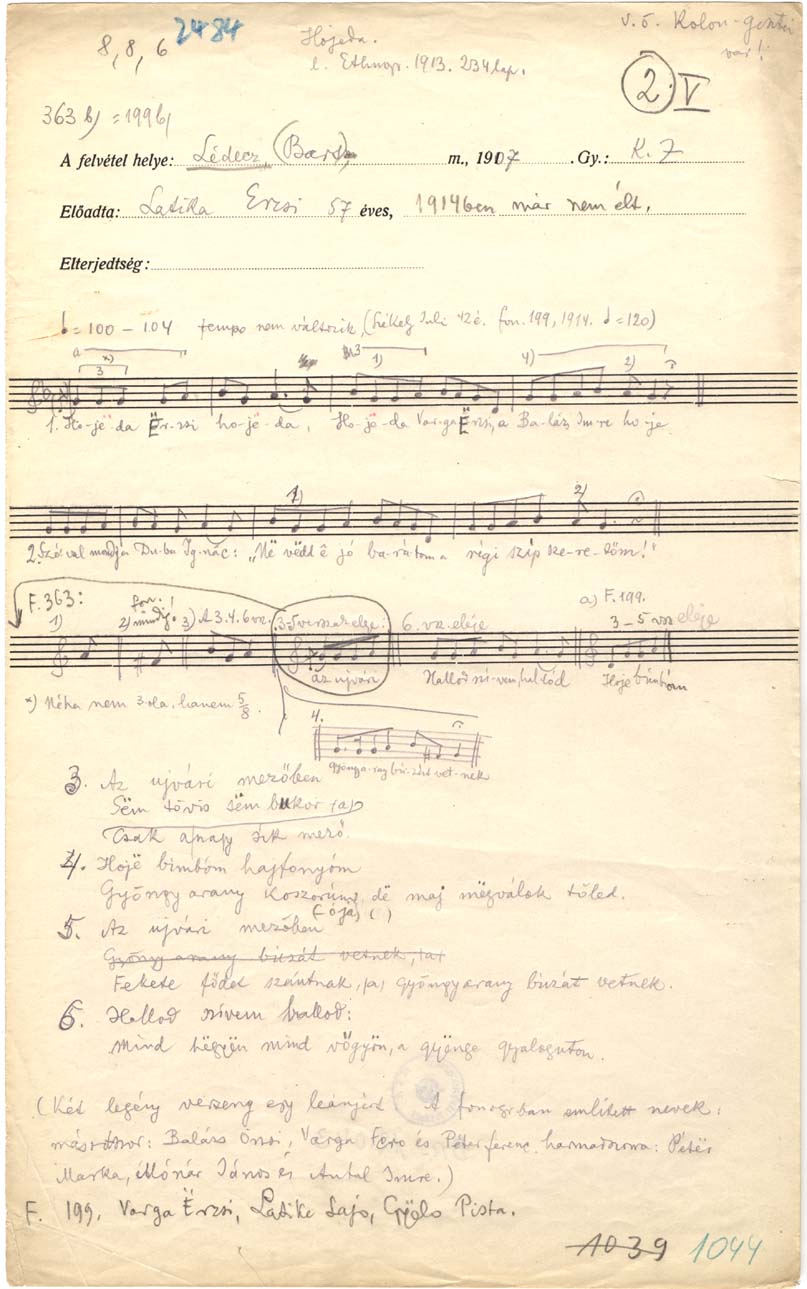 8, 8, 6 2484
Hojëda.
l. Ethnogr. 1913. 234 lap.
v. ö. Kolon-gesztei
var!
2. V
363 b) = 199 b)
A felvétel helye: Lédecz, (Bars) m., 1907 . Gy.: K. Z
Előadta: Latika Erzsi 57 éves, 1914ben már nem élt.
Elterjedtség:
= 100 – 104 tempo nem változik (Székely Juli 42 é. fon. 199, 1914. = 120)
a *) 3 3 1) 4) 2)
1. Ho-jë-da Ër-zsi ho-jë-da, Ho-jë-da Var-ga Ërzsi, a Ba-lázs Im-re ho-je
1) 2)
2. Szóval mondja Du-ba Ig-nác: „Në vëdd ê jó ba-rá-tom a régi szép sze-re-tőm!"
F. 363: fon. !
1) 2) mindig. 3) A 3. 4. 6 vsz. 3-5 versszak eleje: 6. vsz. eleje a) F. 199.
3 – 5 vsz eleje
az ujvári Hallod szí-vem, hallod Hoje bimbóm
*) Néha nem 3-ola, hanem 5/8.
4.
gyöngy-a-rany bú-zát vet-nek
3. Az ujvári mezőben
Sëm tövis sëm bukor (a)
Csak a nagy sík mező.
4. Hojë bimbóm hajfonyóm
Gyöngyarany koszorúm, dë maj mëgválok tőled.
(-ója) ( )
5. Az ujvári mezőben
Gyöngy arany búzát vetnek, (a)
Fekete födet szántnak, (a) gyöngyarany búzát vetnek.
6. Hallod szívem hallod:
Mind hëgyën mind vőgyön, a gyënge gyaloguton.
(Két legény verseng egy leányért. A fonogrban említett nevek:
másodszor: Balázs Örzsi, Varga Fero és Péter ferenc, harmadszorra: Pétër
Marka, Mónár János és Antal Imre.)
F. 199. Varga Ërzsi, Latike Lajó, Gyëlo Pista.
1039 1044